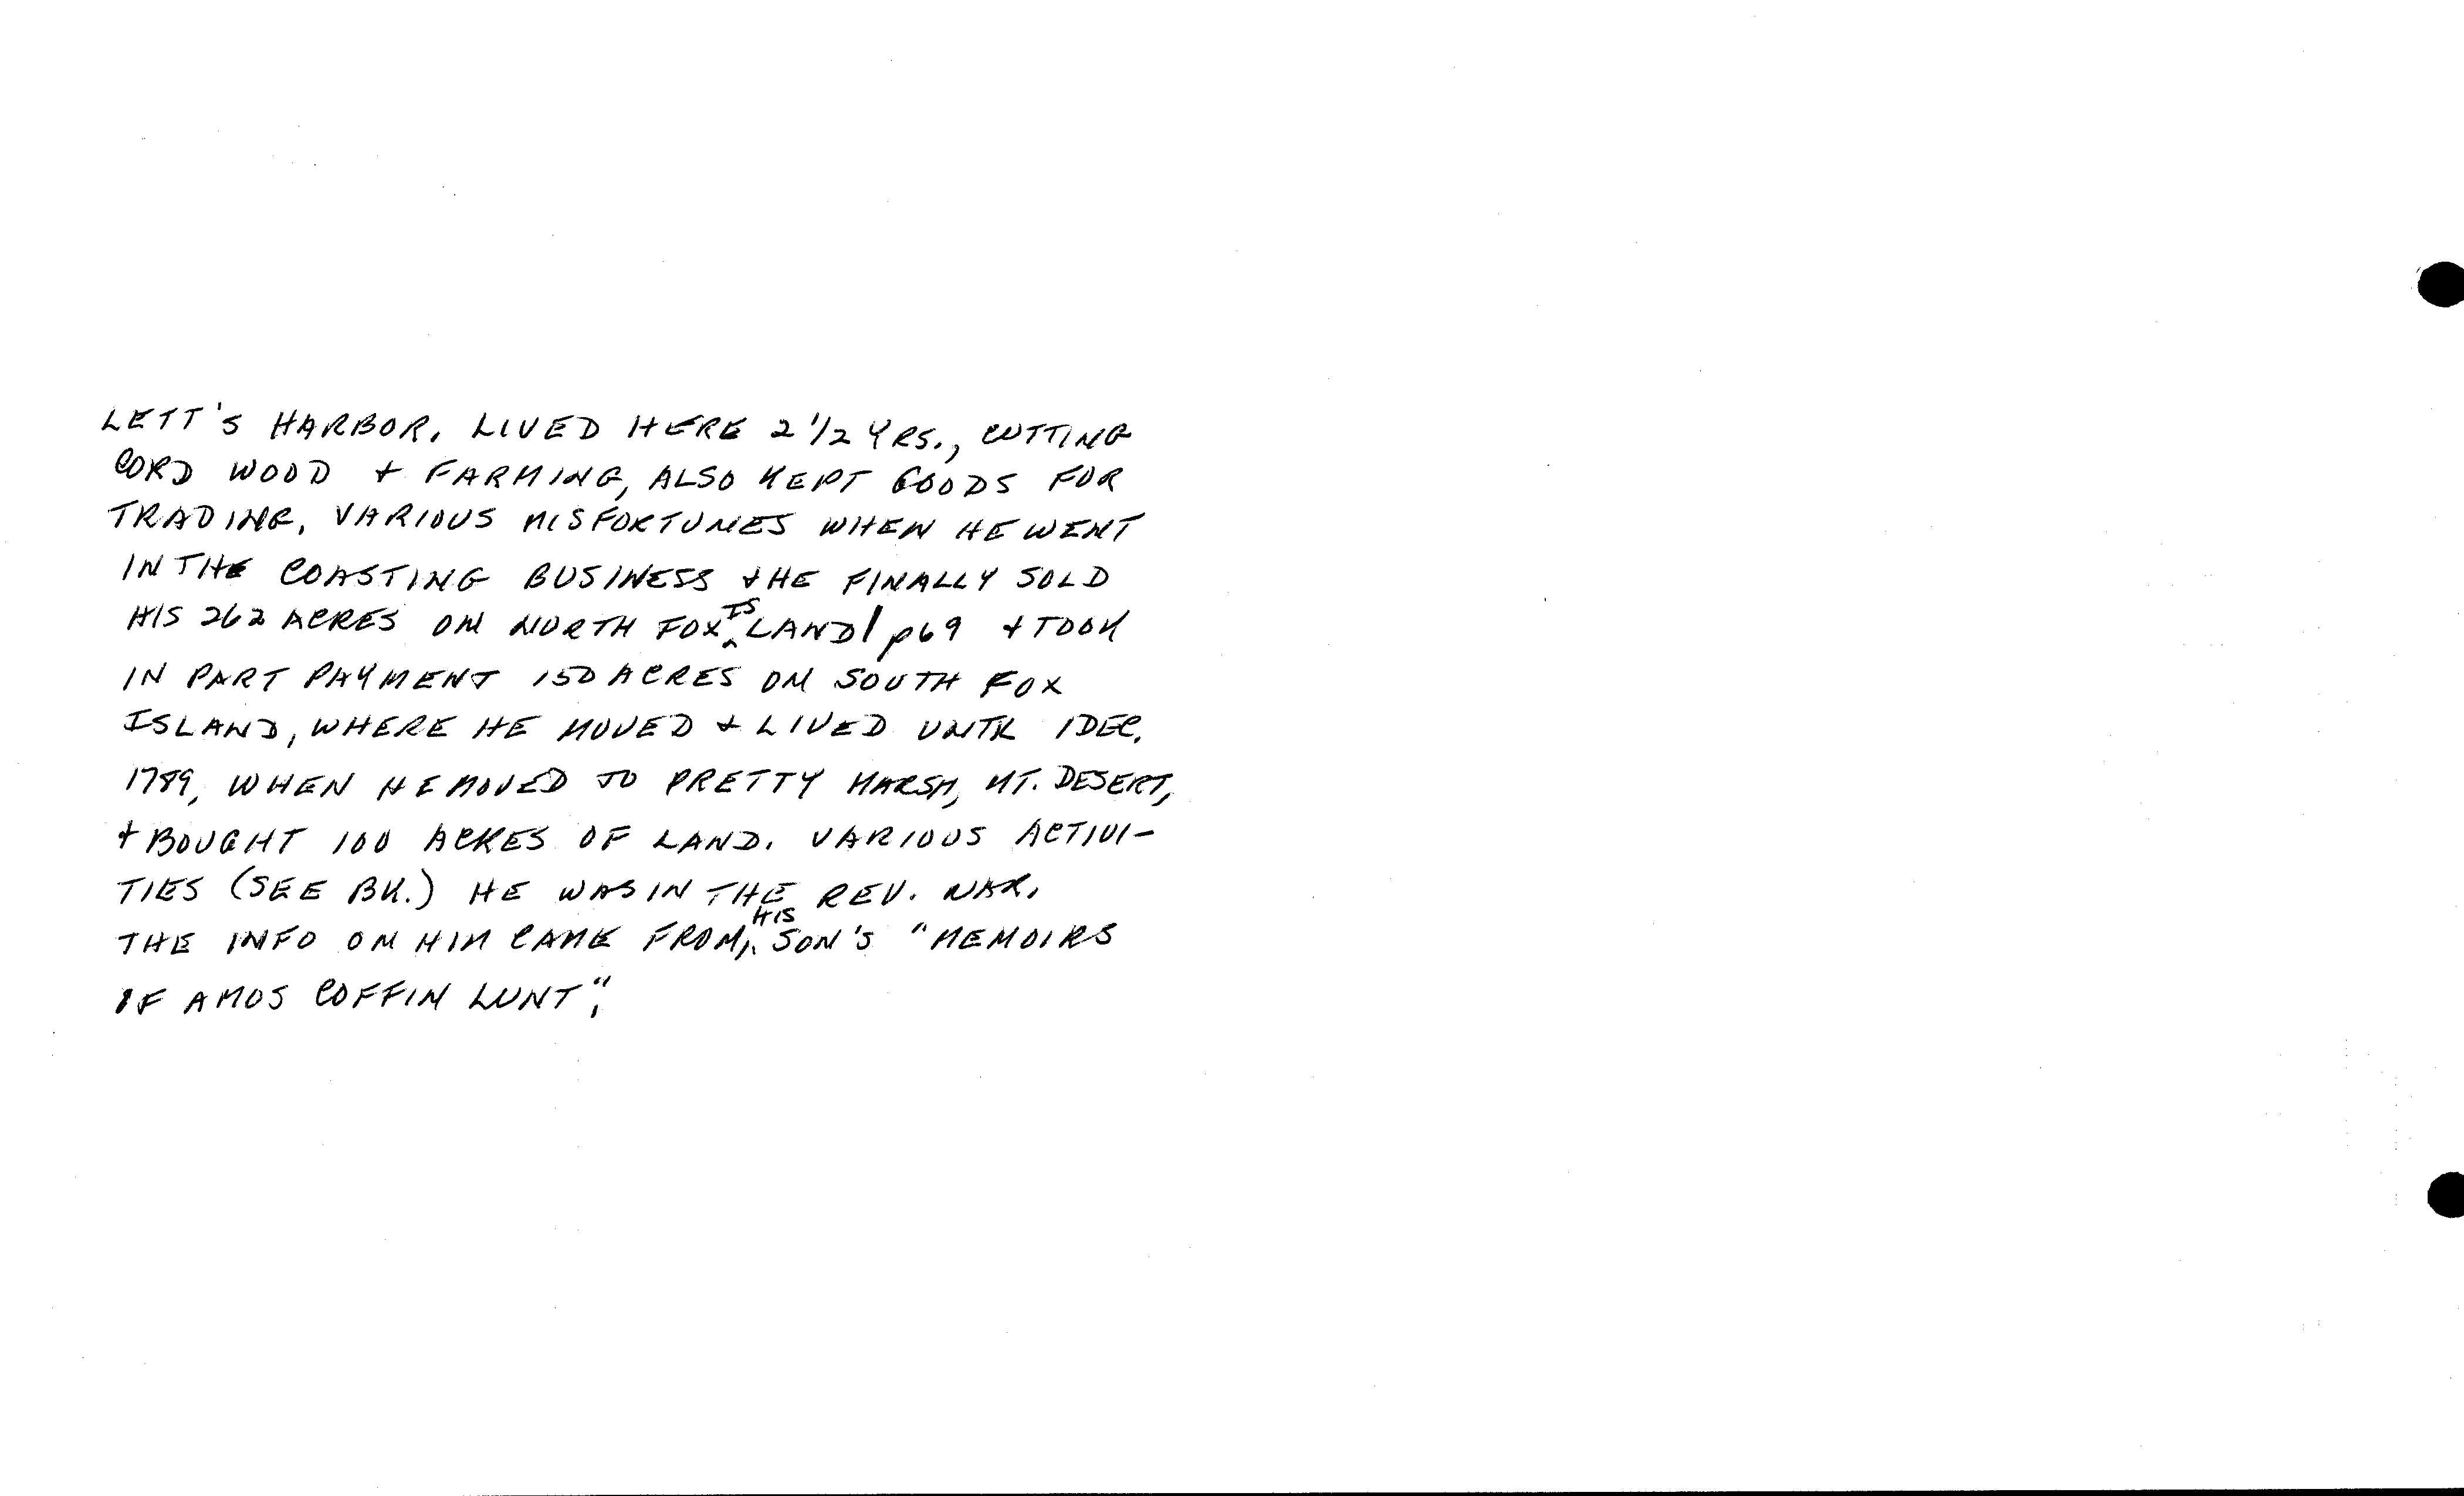 LETT'S HARBOR. LIVED HERE 2 1/2 YRS., CUTTING
CORD WOOD + FARMING, ALSO KEPT GOODS FOR
TRADING. VARIOUS MISFORTUNES WHEN HE WENT
IN THE COASTING BUSINESS + HE FINALLY SOLD
HIS 262 ACRES ON NORTH FOX ISLAND/p69 + TOOK
IN PART PAYMENT 150 ACRES ON SOUTH FOX
ISLAND, WHERE HE MOVED + LIVED UNTIL 1 DEC.
1789, WHEN HE MOVED TO PRETTY MARSH, MT. DESERT,
+ BOUGHT 100 ACRES OF LAND. VARIOUS ACTIVI-
TIES (SEE BK.) HE WAS IN THE REV. WAR.
THE INFO ON HIM CAME FROM HIS SON'S "MEMOIRS
OF AMOS COFFIN LUNT".